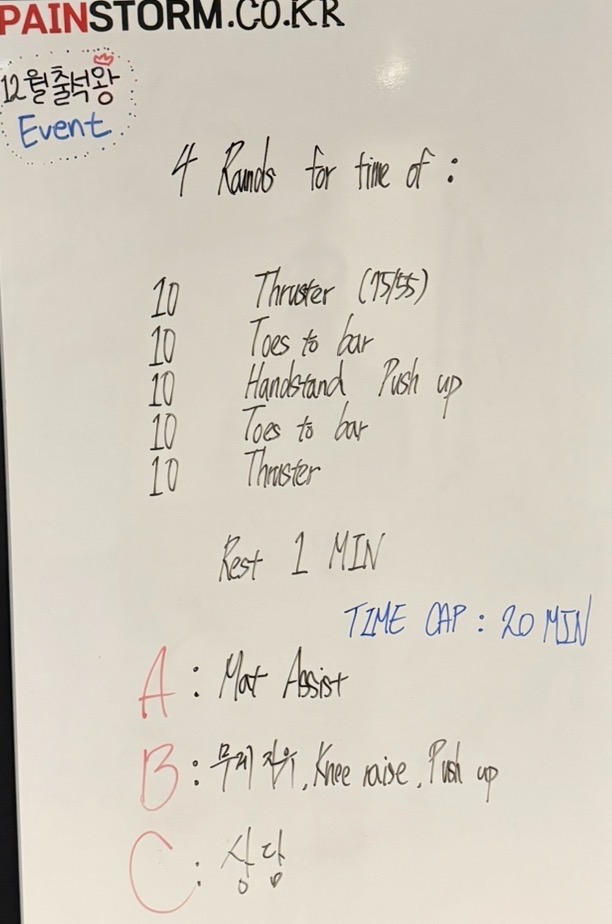 PAINSTORM.CO.KR
12월 출석왕
Event
4 Rounds for time of :
10 Thruster (75/55)
10 Toes to bar
10 Handstand Push up
10 Toes to bar
10 Thruster
Rest 1 MIN
TIME CAP : 20 MIN
A : Mat Assist
B : 무게 자유, Knee raise, Push up
C : 상담